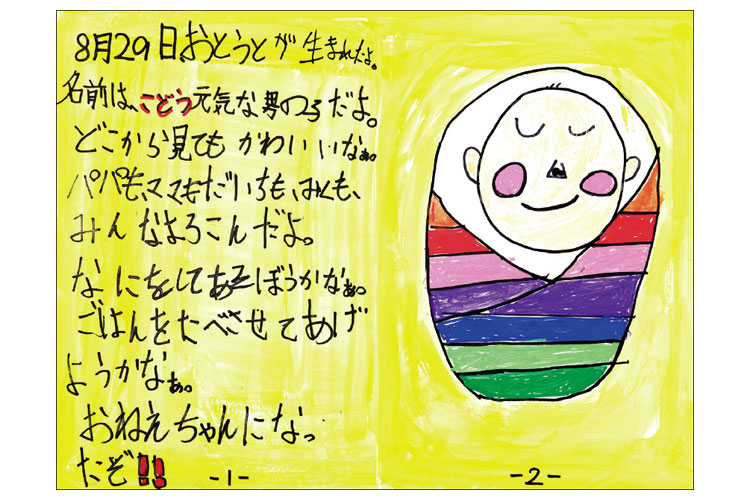 8月29日おとうとが生まれたよ。
名前は、こどう元気な男の子だよ。
どこから見てもかわいいなぁ。
パパも、ママもだいちも、みくも、
みんなよろこんだよ。
なにをしてあそぼうかなぁ。
ごはんをたべさせてあげ
ようかなぁ。
おねえちゃんになっ
たぞ!!
-1-
-2-